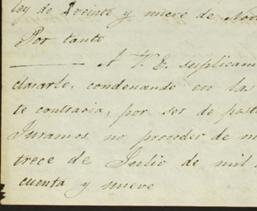 ley de veinte y nueve de Nov
Por tanto
A V. E. suplicam
clararle, condenando en las
te contraria, por ser de just
Juramos no proceder de m
trece de Julio de mil
cuenta y nueve